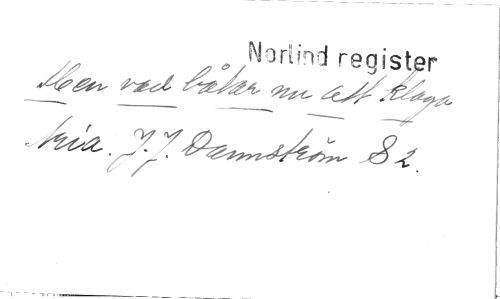 Norlind register
Men vad båtar nu att klaga
Aria. J. J. Dannström S 2.